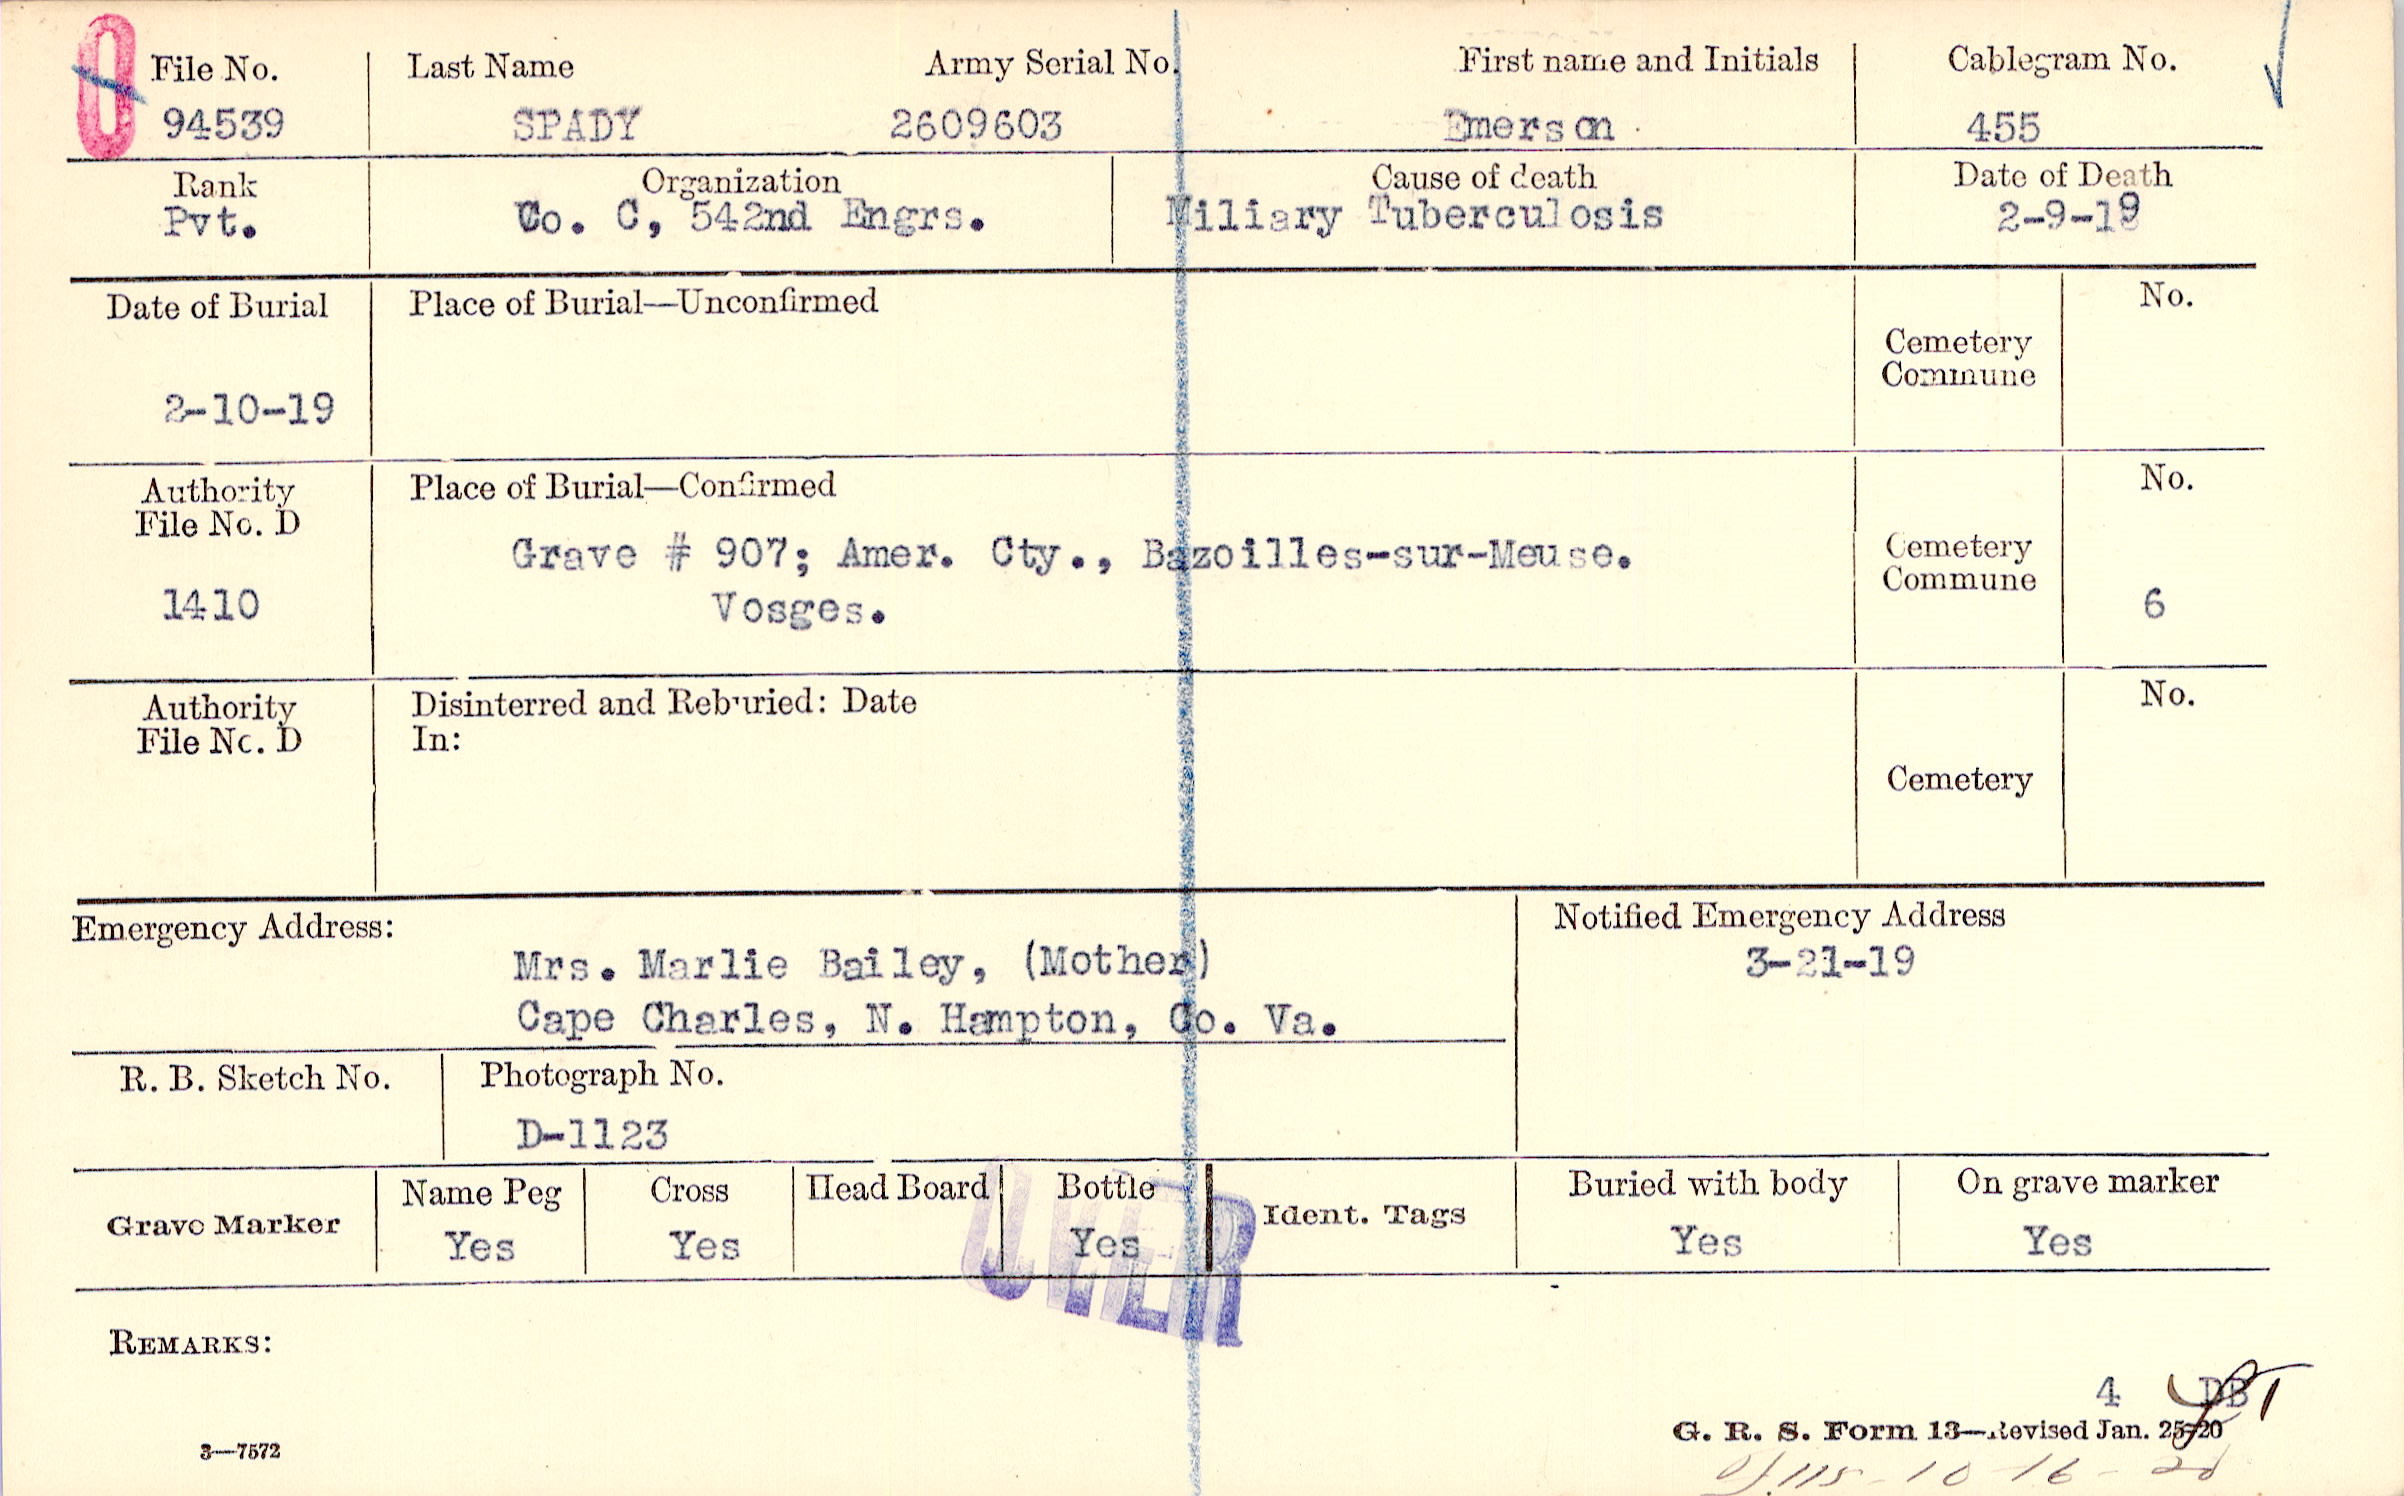 O
File No. Last Name Army Serial No. First name and Initials Cablegram No.
94539 SPADY 2609603 Emerson 455
Rank Organization Cause of death Date of Death
Pvt. Co. C, 542nd Engrs. Miliary Tuberculosis 2-9-19
Date of Burial Place of Burial—Unconfirmed No.
Cemetery
Commune
2-10-19
Authority Place of Burial—Confirmed No.
File No. D
Grave # 907; Amer. Cty., Bazoilles-sur-Meuse. Cemetery
Commune
1410 Vosges. 6
Authority Disinterred and Reburied: Date No.
File No. D In:
Cemetery
Emergency Address: Notified Emergency Address
Mrs. Marlie Bailey, (Mother) 3-21-19
Cape Charles, N. Hampton, Co. Va.
R. B. Sketch No. Photograph No.
D-1123
Grave Marker Name Peg Cross Head Board Bottle Ident. Tags Buried with body On grave marker
Yes Yes Yes Yes Yes
OVER
REMARKS:
4 DB
G. R. S. Form 13—Revised Jan. 25-20
3—7572
10-16-20